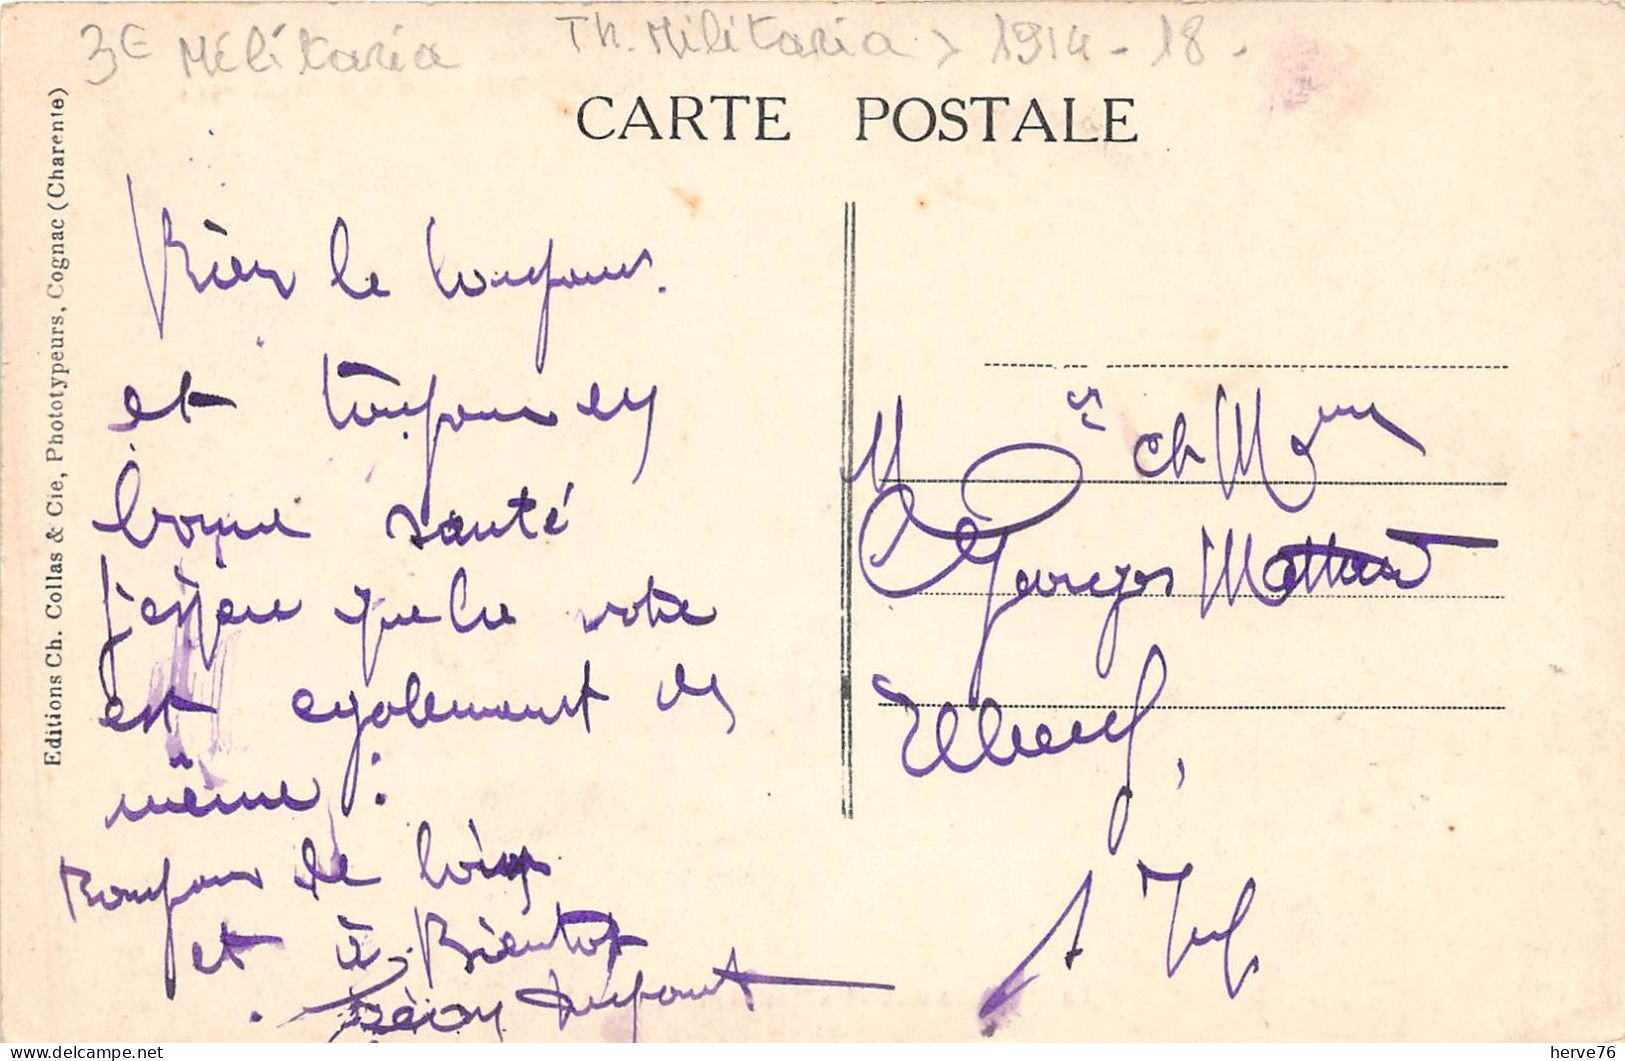 3€ Militaria
Th. Militaria > 1914-18-
CARTE POSTALE
Editions Ch. Collas & Cie, Phototypeurs, Cognac (Charente)
Rien le toujours.
et toujours en
bonne santé
J'espère que la votre
est egalement de
même.
Bonjour de loin
et à Bientot
Dupont
M
Georges
herve76